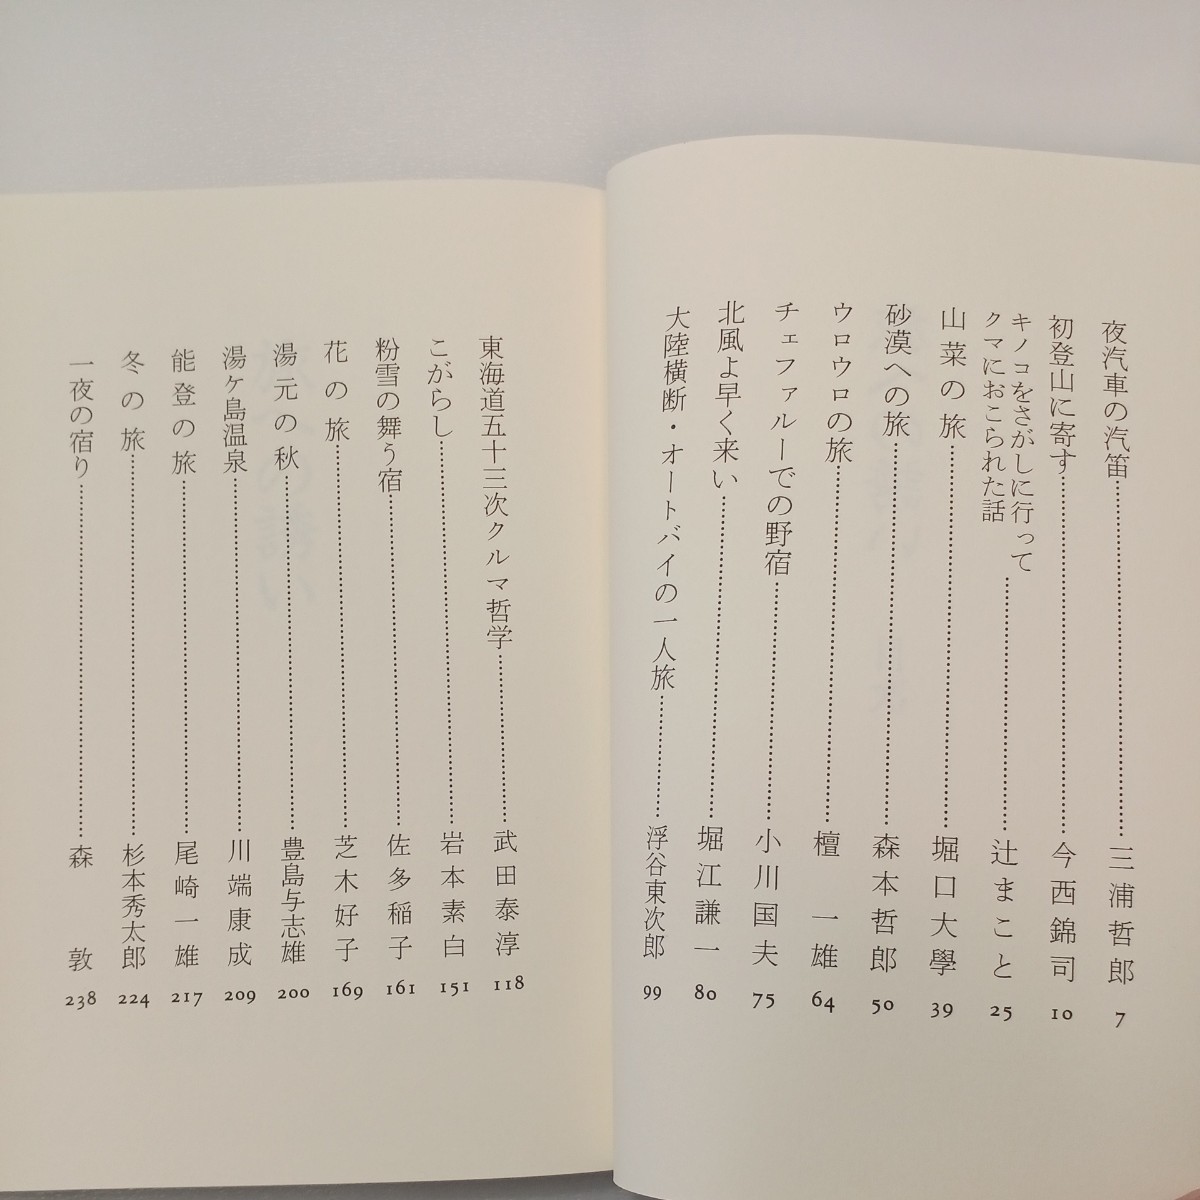 夜汽車の汽笛……三浦哲郎 7
初登山に寄す……今西錦司 10
キノコをさがしに行って
クマにおこられた話……辻まこと 25
山菜の旅……堀口大學 39
砂漠への旅……森本哲郎 50
ウロウロの旅……檀一雄 64
チェファルーでの野宿……小川国夫 75
北風よ早く来い……堀江謙一 80
大陸横断・オートバイの一人旅……浮谷東次郎 99
東海道五十三次クルマ哲学……武田泰淳 118
こがらし……岩本素白 151
粉雪の舞う宿……佐多稲子 161
花の旅……芝木好子 169
湯元の秋……豊島与志雄 200
湯ケ島温泉……川端康成 209
能登の旅……尾崎一雄 217
冬の旅……杉本秀太郎 224
一夜の宿り……森敦 238